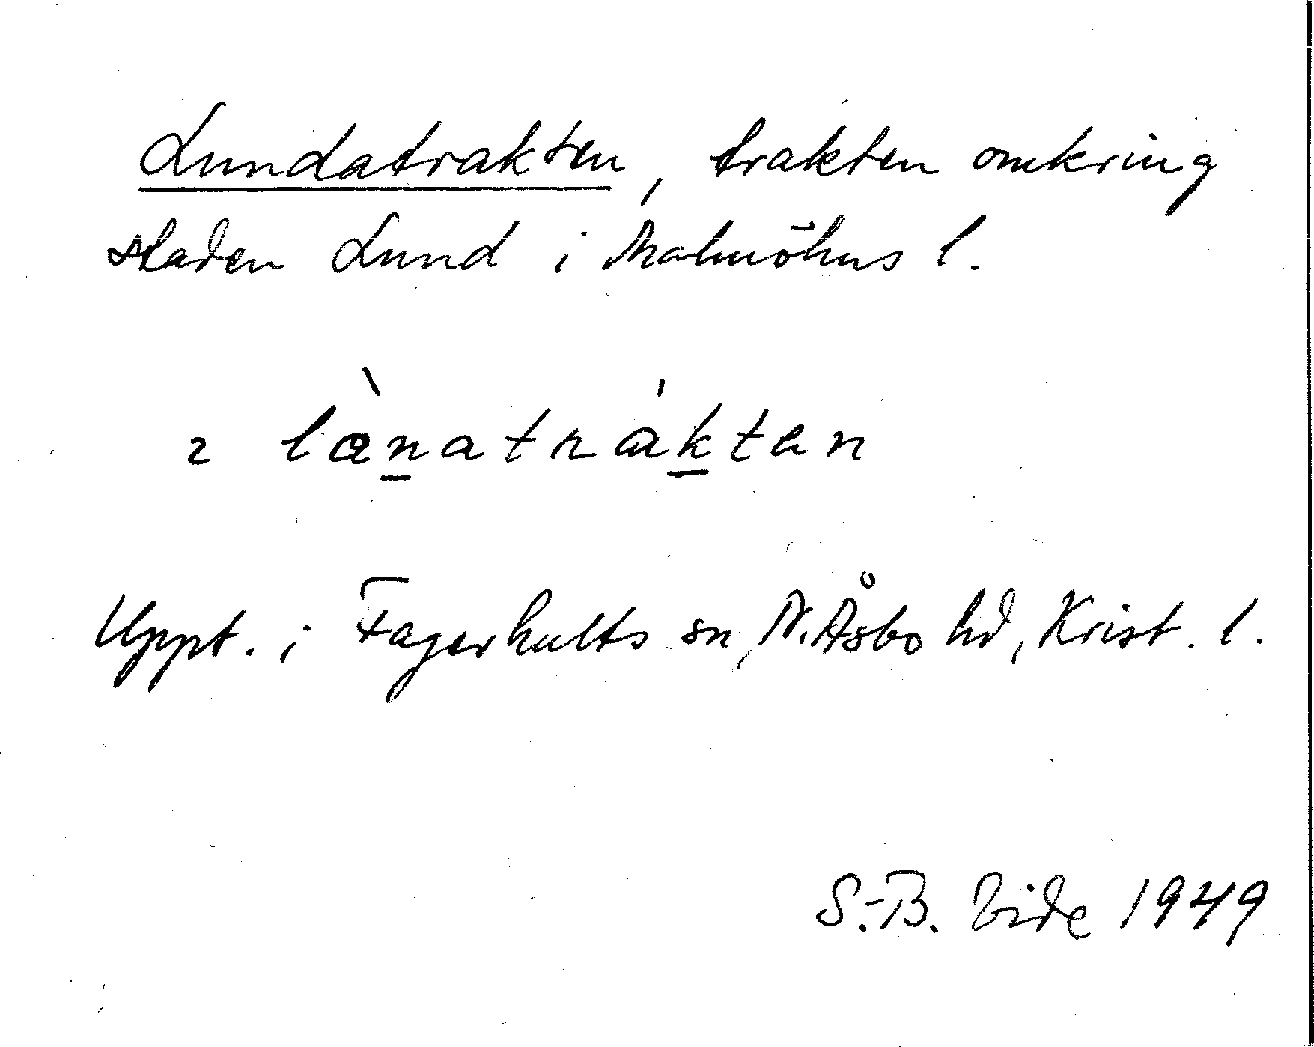 Lundatrakten, trakten omkring
staden Lund i Malmöhus l.
2 lànatráktan
Uppt. i Fagerhults sn, N. Åsbo hd, Krist. l.
S.-B. Vide 1949